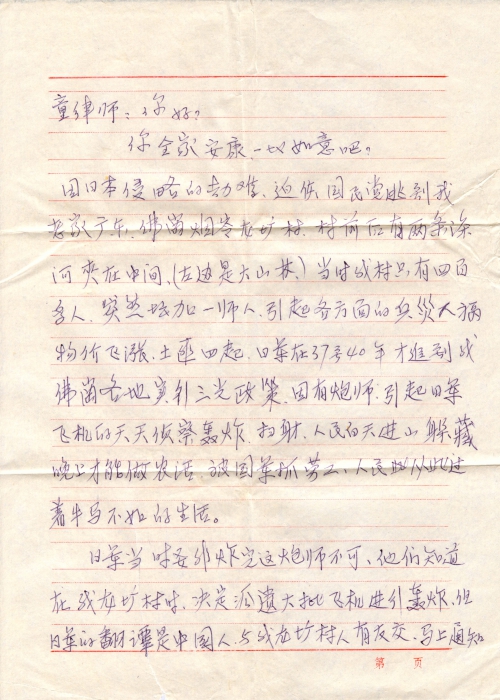 童律师：你好？
你全家安康，一切如意吧？
因日本侵略的劫难，迫使国民党逃到我
老家广东，佛岗烟岭龙圹村，村前后有两条深
河夹在中间，(左边是大山林) 当时我村只有四百
多人，突然增加一师人，引起各方面的兵灾大祸
物价飞涨，土匪四起，日军在37与40年才进到我
佛岗各地实行三光政策，因有炮师，引起日军
飞机的天天侦察轰炸，扫射，人民白天进山躲藏
晚上才能做农活，被国军抓劳工，人民从此过
着牛马不如的生活。
日军当时要非炸完这炮师不可，他们知道
在我龙圹村时，决定派遣大批飞机进行轰炸，但
日军的翻译是中国人，与我龙圹村人有友交，马上通知
第 页